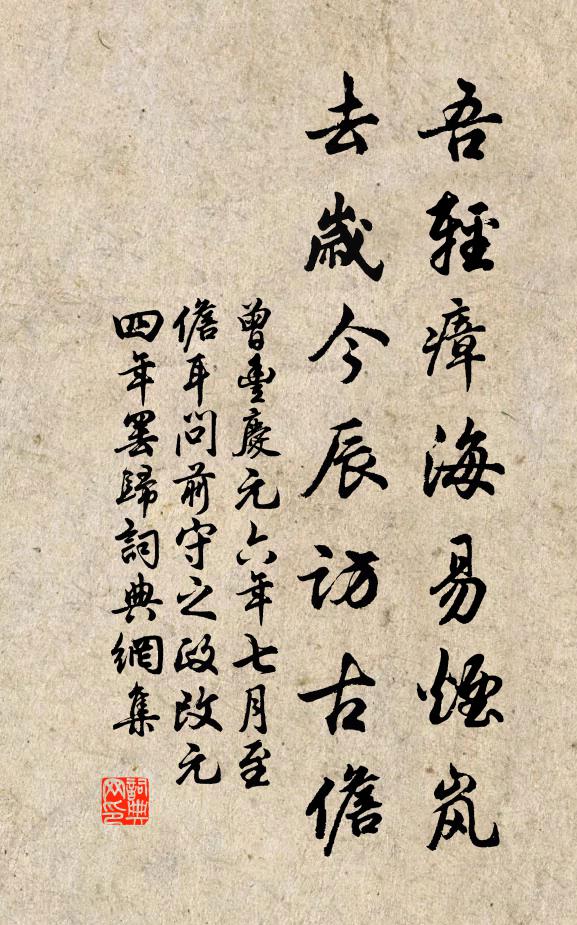 吾輕瘴海易煙岚
去歲今辰訪古儋
曾豐慶元六年七月至
儋耳問前守之政改元
四年罢歸詞典網集
詞典
网印